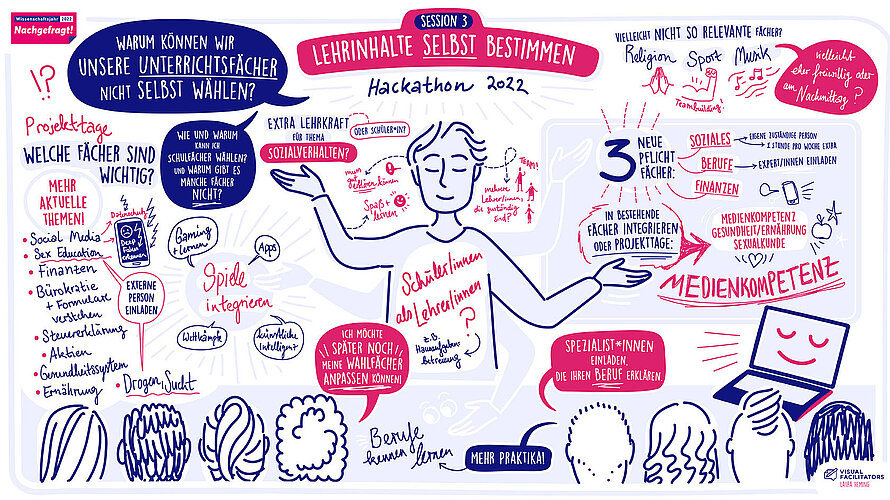 Wissenschaftsjahr 2022
Nachgefragt!
SESSION 3
LEHRINHALTE SELBST BESTIMMEN
Hackathon 2022
WARUM KÖNNEN WIR
UNSERE UNTERRICHTSFÄCHER
NICHT SELBST WÄHLEN?
!?
Projekttage
WELCHE FÄCHER SIND
WICHTIG?
WIE UND WARUM
KANN ICH
SCHULFÄCHER WÄHLEN?
UND WARUM GIBT ES
MANCHE FÄCHER
NICHT?
MEHR
AKTUELLE
THEMEN!
• Social Media
• Sex Education
• Finanzen
• Bürokratie
+ Formulare
verstehen
• Steuererklärung
• Aktien
• Gesundheitssystem
• Ernährung
• Drogen, Sucht
Datenschutz
Deep
Fakes
erkennen
EXTERNE
PERSON
EINLADEN
Gaming
+ Lernen
Apps
Spiele
integrieren
Wettkämpfe
künstliche
Intelligenz?
EXTRA LEHRKRAFT
FÜR THEMA
SOZIALVERHALTEN?
ODER SCHÜLER*IN?
muss
gut
erklären können
Spaß +
lernen
Team!
mehrere
Lehrer/innen,
die zuständig
sind?
Schüler/innen
als Lehrer/innen
?
z.B.
Hausaufgaben-
betreuung
ICH MÖCHTE
SPÄTER NOCH
MEINE WAHLFÄCHER
ANPASSEN KÖNNEN!
Berufe
kennen lernen
MEHR PRAKTIKA!
SPEZIALIST*INNEN
EINLADEN,
DIE IHREN BERUF ERKLÄREN.
VIELLEICHT NICHT SO RELEVANTE FÄCHER?
Religion
Sport
Musik
Teambuilding!
vielleicht
eher freiwillig oder
am Nachmittag?
3
NEUE
PFLICHT
FÄCHER:
SOZIALES
EIGENE ZUSTÄNDIGE PERSON
1 STUNDE PRO WOCHE EXTRA
BERUFE
EXPERT/INNEN EINLADEN
FINANZEN
IN BESTEHENDE
FÄCHER INTEGRIEREN
ODER PROJEKTTAGE:
MEDIENKOMPETENZ
GESUNDHEIT/ERNÄHRUNG
SEXUALKUNDE
MEDIENKOMPETENZ
VISUAL
FACILITATORS